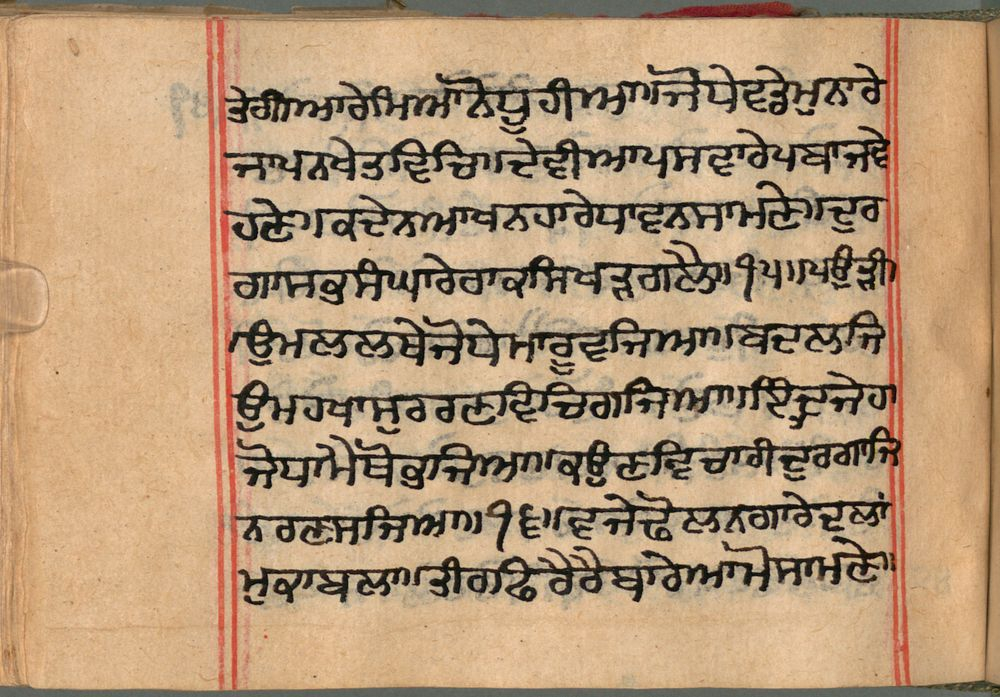 ਤੇਗੀਆਰੇਮਿਆਨੋਧੂਹੀਆ॥ਜੋਧੇਵਡੇਮੁਨਾਰੇ
ਜਾਪਨਖੇਤਵਿਚਿ॥ਦੇਵੀਆਪਸਵਾਰੇਪਬਾਜਵੇ
ਹਣੇ॥ਕਦੇਨਆਖਨਹਾਰੇਧਾਵਨਸਾਮਣੇ॥ਦੁਰ
ਗਾਸਭਸੰਘਾਰੇਰਾਕਸਿਖੜਗਲੈ॥੧੫॥ਪਉੜੀ
॥ਉਮਲਲਥੇਜੋਧੇਮਾਰੂਵਜਿਆ॥ਬਦਲਜਿ
ਉਮਹਖਾਸੁਰਰਣਵਿਚਿਗਜਿਆ॥ਇੰਦ੍ਰਜੇਹਾ
ਜੋਧਾਮੈਥੋਭਜਿਆ॥ਕਉਣਵਿਚਾਰੀਦੁਰਗਾਜਿ
ਨਰਣਸਜਿਆ॥੧੬॥ਵਜੇਢੋਲਨਗਾਰੇਦਲਾਂ
ਮੁਕਾਬਲਾ॥ਤੀਰਫਿਰੈਰੈਬਾਰੇਆਮੋਸਾਮਣੇ॥